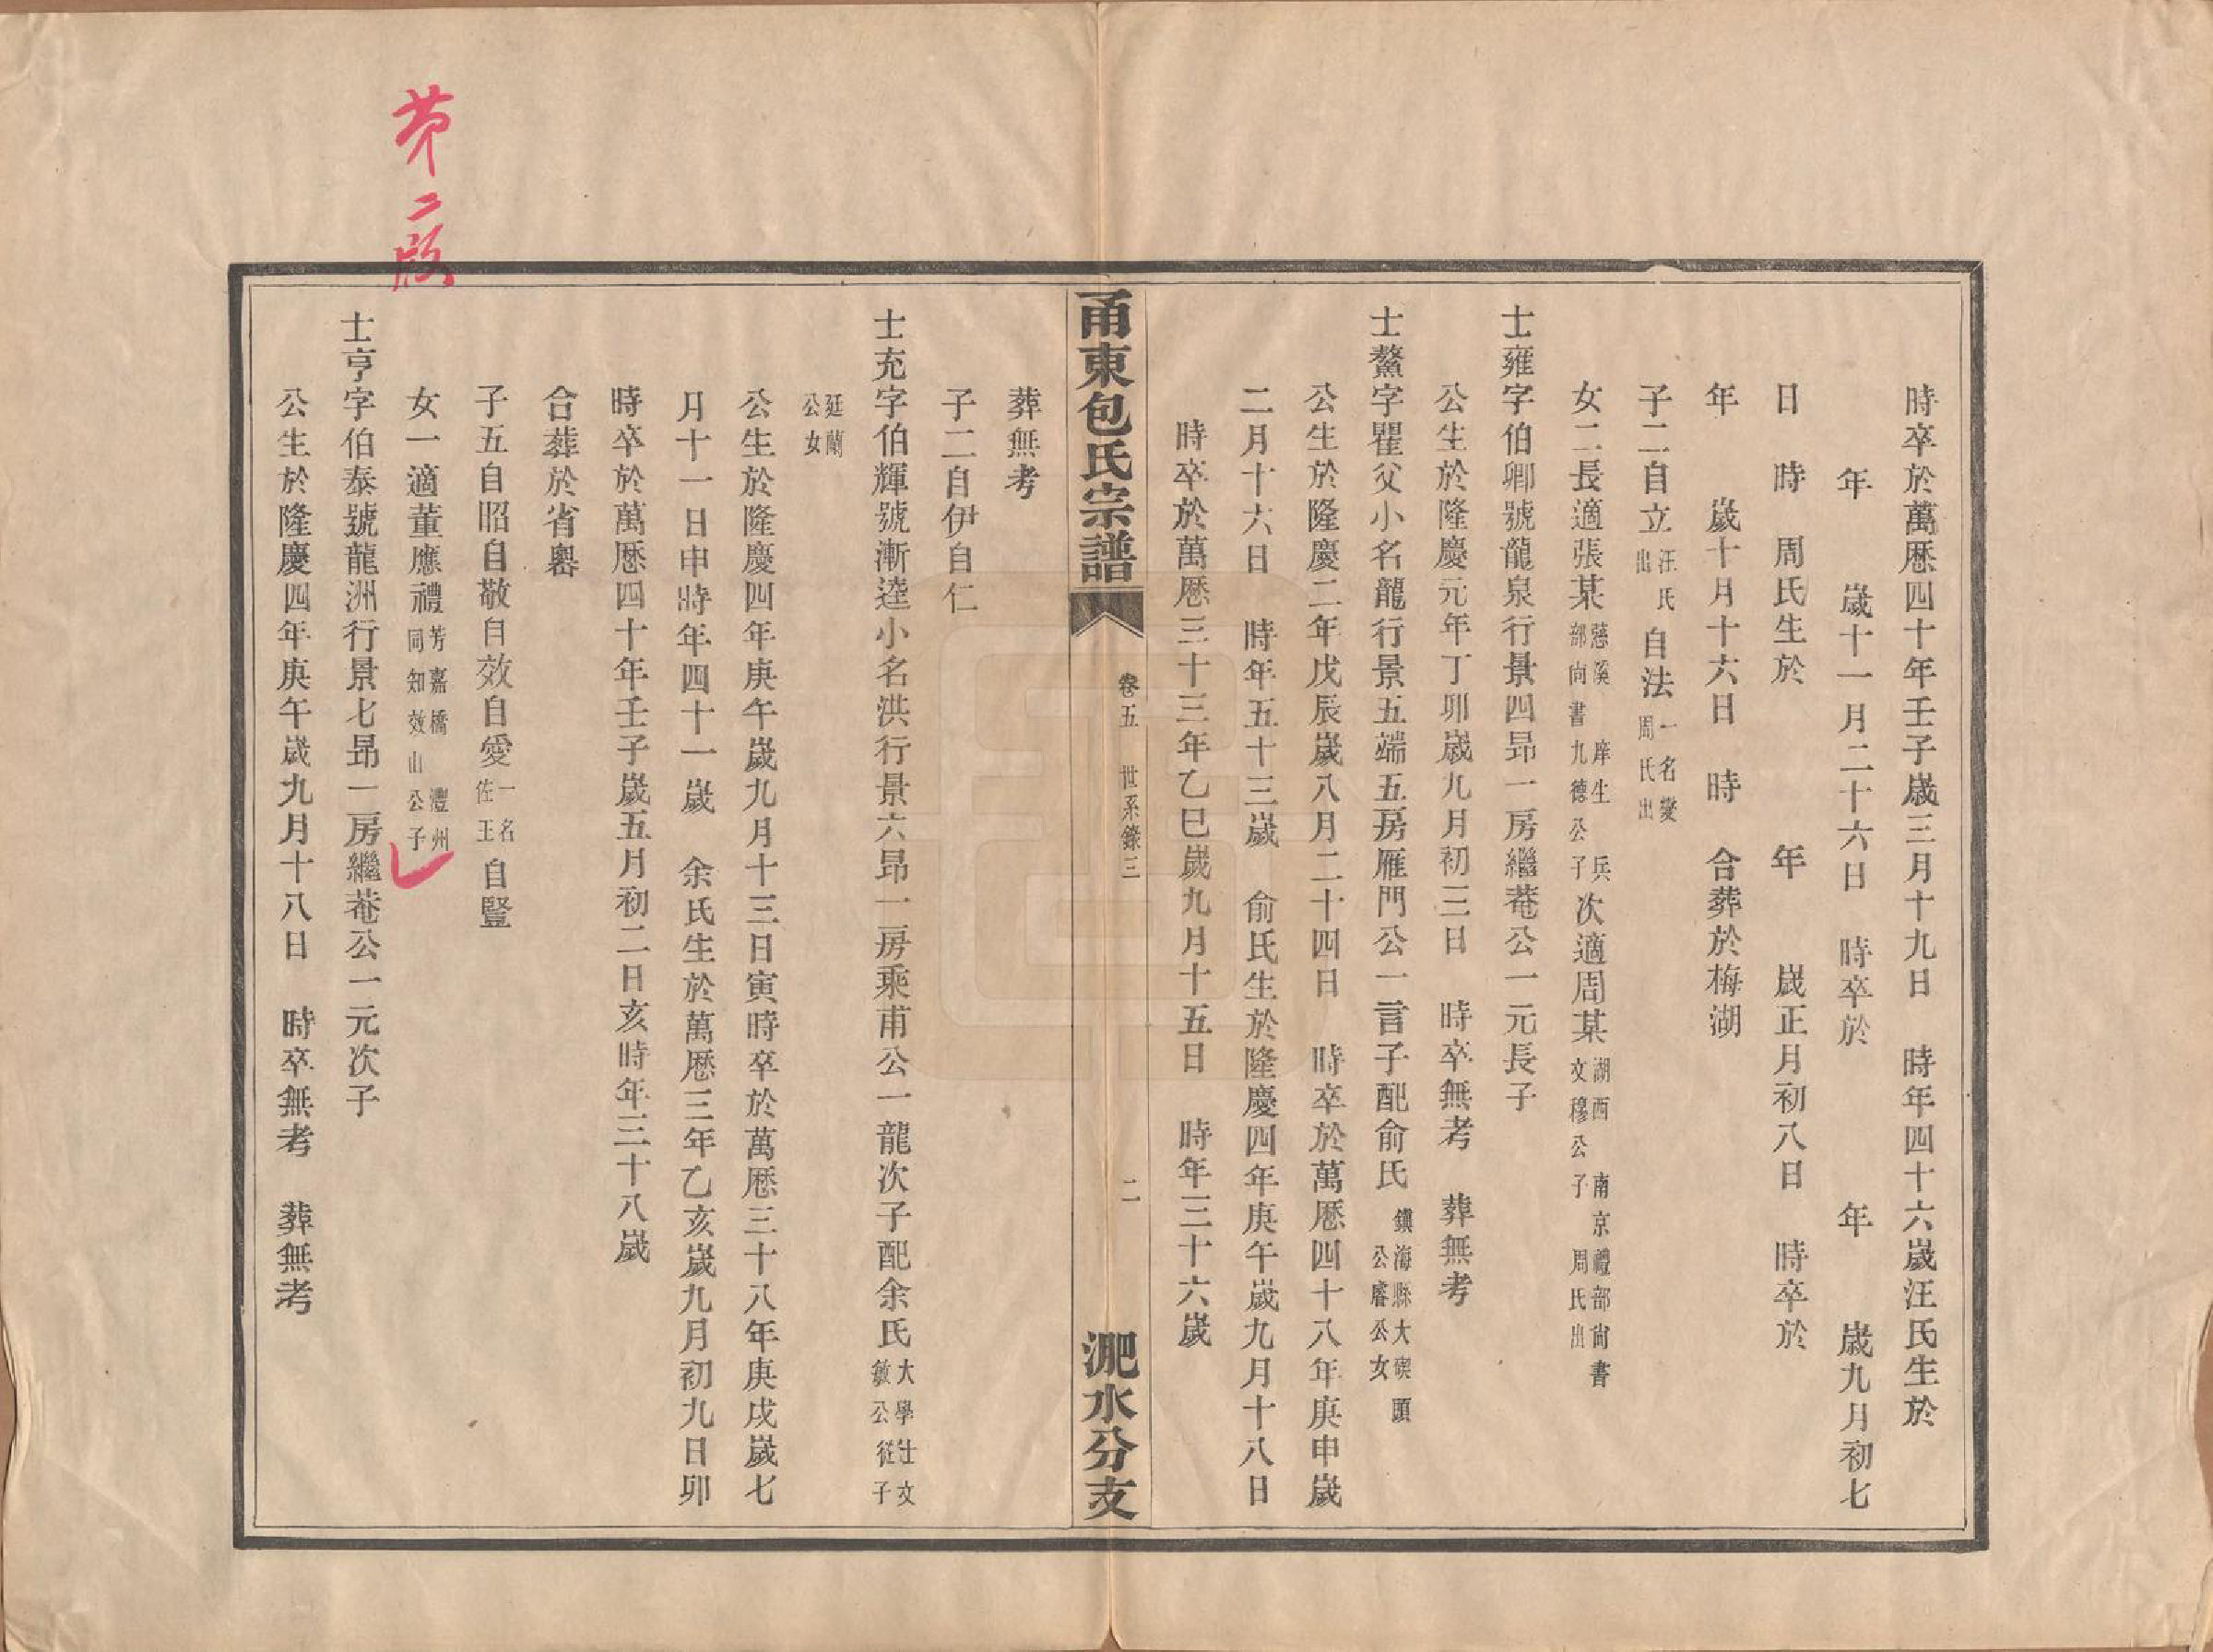 時卒於萬厯四十年壬子歲三月十九日　時年四十六歲汪氏生於
年　歲十一月二十六日　時卒於　年　歲九月初七
日　時　周氏生於　年　歲正月初八日　時卒於
年　歲十月十六日　時　合葬於梅湖
子二自立汪氏出自法一名變周氏出
女二長適張某慈溪庠生兵部尙書九德公子次適周某湖西南京禮部尙書文穆公子周氏出
士雍字伯卿號龍泉行景四昂一房繼菴公一元長子
公生於隆慶元年丁卯歲九月初三日　時卒無考　葬無考
士鰲字瞿父小名龍行景五端五房雁門公一言子配俞氏鎭海縣大碶頭公睿公女
公生於隆慶二年戊辰歲八月二十四日　時卒於萬厯四十八年庚申歲
二月十六日　時年五十三歲　俞氏生於隆慶四年庚午歲九月十八日
時卒於萬厯三十三年乙巳歲九月十五日　時年三十六歲
甬東包氏宗譜　卷五　世系錄三　二　淝水分支
葬無考
子二自伊自仁
士充字伯輝號漸逵小名洪行景六昂一房乘甫公一龍次子配余氏大學士文敏公從子
廷蘭公女
公生於隆慶四年庚午歲九月十三日寅時卒於萬厯三十八年庚戌歲七
月十一日申時年四十一歲　余氏生於萬厯三年乙亥歲九月初九日卯
時卒於萬厯四十年壬子歲五月初二日亥時年三十八歲
合葬於省嶴
子五自昭自敬自效自愛一名佐王自豎
女一適董應禮芳嘉橋澧州同知效山公子
士亨字伯泰號龍洲行景七昂一房繼菴公一元次子
公生於隆慶四年庚午歲九月十八日　時卒無考　葬無考
第二版